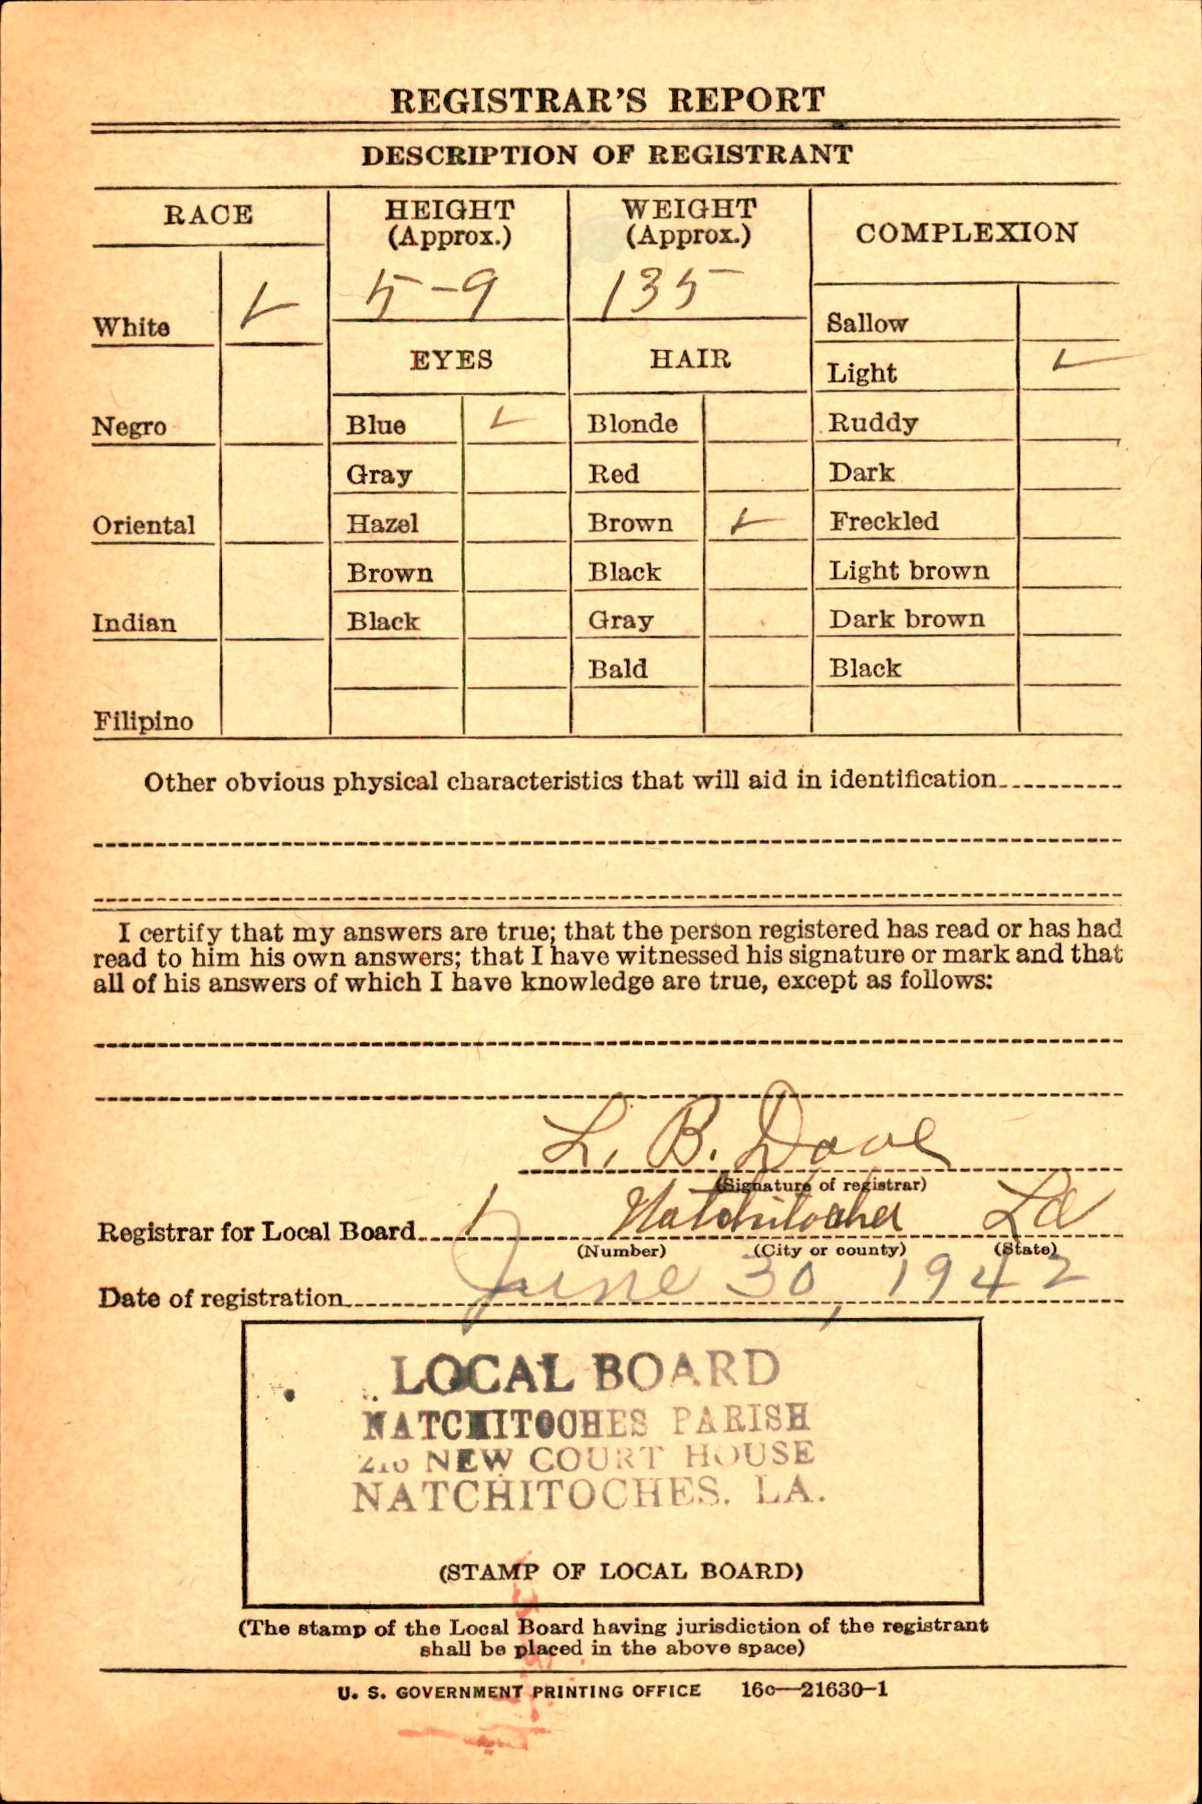 REGISTRAR'S REPORT
DESCRIPTION OF REGISTRANT
RACE HEIGHT (Approx.) WEIGHT (Approx.) COMPLEXION
5-9 135
White ✓
Sallow
EYES HAIR
Light ✓
Negro Blue ✓ Blonde Ruddy
Gray Red Dark
Oriental Hazel Brown ✓ Freckled
Brown Black Light brown
Indian Black Gray Dark brown
Bald Black
Filipino
Other obvious physical characteristics that will aid in identification
I certify that my answers are true; that the person registered has read or has had
read to him his own answers; that I have witnessed his signature or mark and that
all of his answers of which I have knowledge are true, except as follows:
L. B. Dove
(Signature of registrar)
Registrar for Local Board 1 Natchitoches La
(Number) (City or county) (State)
Date of registration June 30, 1942
LOCAL BOARD
NATCHITOCHES PARISH
NEW COURT HOUSE
NATCHITOCHES, LA.
(STAMP OF LOCAL BOARD)
(The stamp of the Local Board having jurisdiction of the registrant
shall be placed in the above space)
U. S. GOVERNMENT PRINTING OFFICE 16c—21630-1